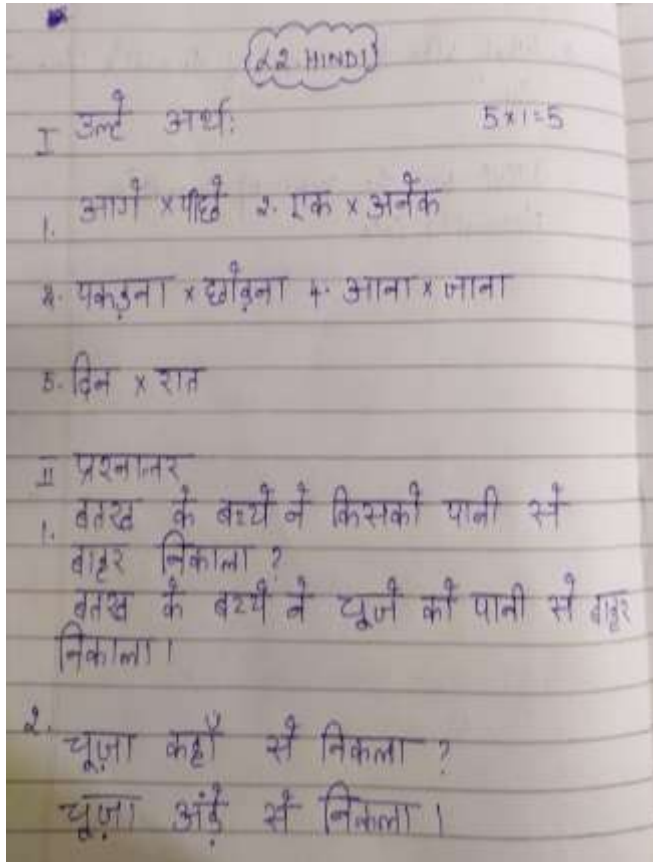 L2 HINDI
I उल्टे अर्थ: 5x1=5
1. आगे x पीछे 2. एक x अनेक
3. पकड़ना x छोड़ना 4. आना x जाना
5. दिन x रात
II प्रश्नोत्तर
1. बतख के बच्चे ने किसको पानी से
बाहर निकाला ?
बतख के बच्चे ने चूजे को पानी से बाहर
निकाला ।
2. चूज़ा कहाँ से निकला ?
चूज़ा अंडे से निकला ।